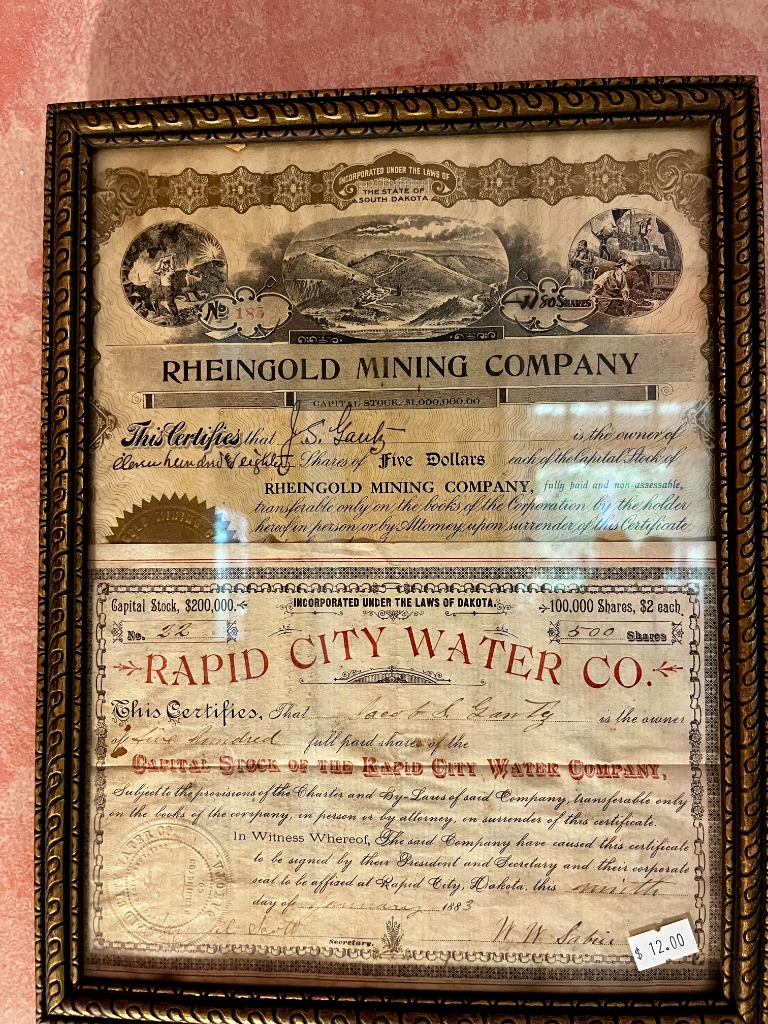 INCORPORATED UNDER THE LAWS OF
THE STATE OF
SOUTH DAKOTA
No 185
1180 SHARES
RHEINGOLD MINING COMPANY
CAPITAL STOCK, $1,000,000.00
This Certifies that J. S. Gantz is the owner of
eleven hundred & eighty Shares of Five Dollars each of the Capital Stock of
RHEINGOLD MINING COMPANY, fully paid and non-assessable,
transferable only on the books of the Corporation by the holder
hereof in person or by Attorney upon surrender of this Certificate
Capital Stock, $200,000.
INCORPORATED UNDER THE LAWS OF DAKOTA.
100,000 Shares, $2 each.
No. 22
500 Shares
RAPID CITY WATER CO.
This Certifies, That Jacob S. Gantz is the owner
of five hundred full paid shares of the
CAPITAL STOCK OF THE RAPID CITY WATER COMPANY,
Subject to the provisions of the Charter and By-Laws of said Company, transferable only
on the books of the company, in person or by attorney, on surrender of this certificate.
In Witness Whereof, The said Company have caused this certificate
to be signed by their President and Secretary and their corporate
seal to be affixed at Rapid City, Dakota, this ninth
day of January 1883
Scott
Secretary.
W W Sabin
$ 12.00